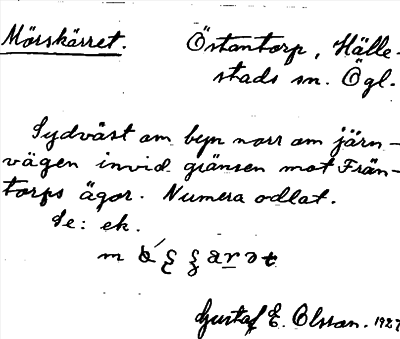 Mörskärret.
Östantorp, Hälle-
stads sn. Ögl.
Sydväst om byn norr om järn-
vägen invid gränsen mot Frän-
torps ägor. Numera odlat.
Se: ek.
m
Gustaf E. Olsson. 1927